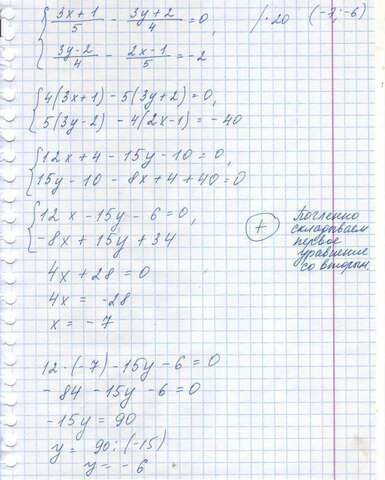 { (3x+1)/5 - (3y+2)/4 = 0, /·20 (-7; -6)
{ (3y-2)/4 - (2x-1)/5 = -2
{ 4(3x+1) - 5(3y+2) = 0,
{ 5(3y-2) - 4(2x-1) = -40
{ 12x + 4 - 15y - 10 = 0,
{ 15y - 10 - 8x + 4 + 40 = 0
{ 12x - 15y - 6 = 0,
{ -8x + 15y + 34
+
Почленно
складываем
первое
уравнение
со вторым.
4x + 28 = 0
4x = -28
x = -7
12·(-7) - 15y - 6 = 0
- 84 - 15y - 6 = 0
-15y = 90
y = 90 : (-15)
y = -6